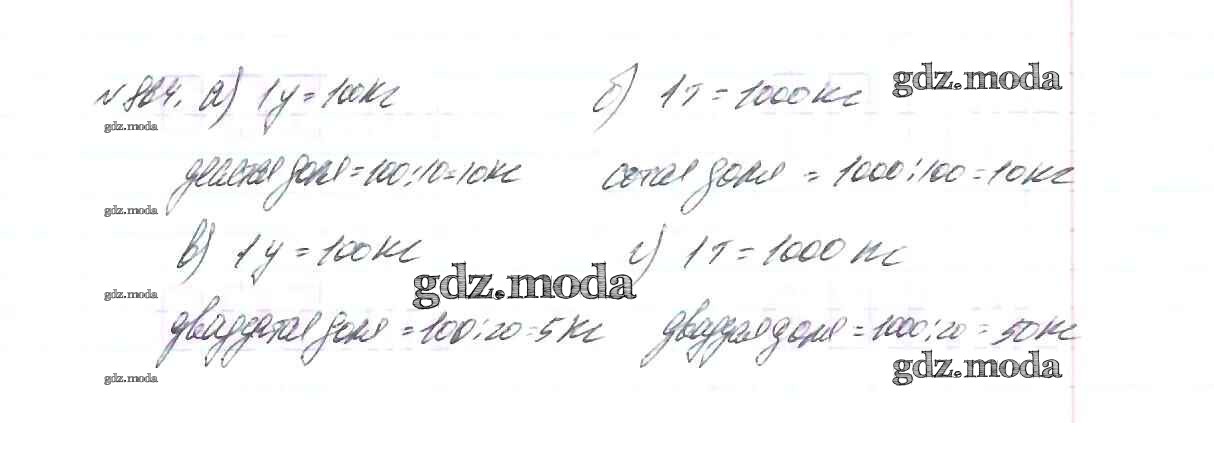 № 864. а) 1ц = 100кг б) 1т = 1000кг gdz.moda
gdz.moda
десятая доля = 100:10=10кг сотая доля = 1000:100=10кг
gdz.moda
в) 1ц = 100кг г) 1т = 1000кг
gdz.moda gdz.moda
двадцатая доля = 100:20=5кг доля = 1000:20 = 50кг
gdz.moda gdz.moda